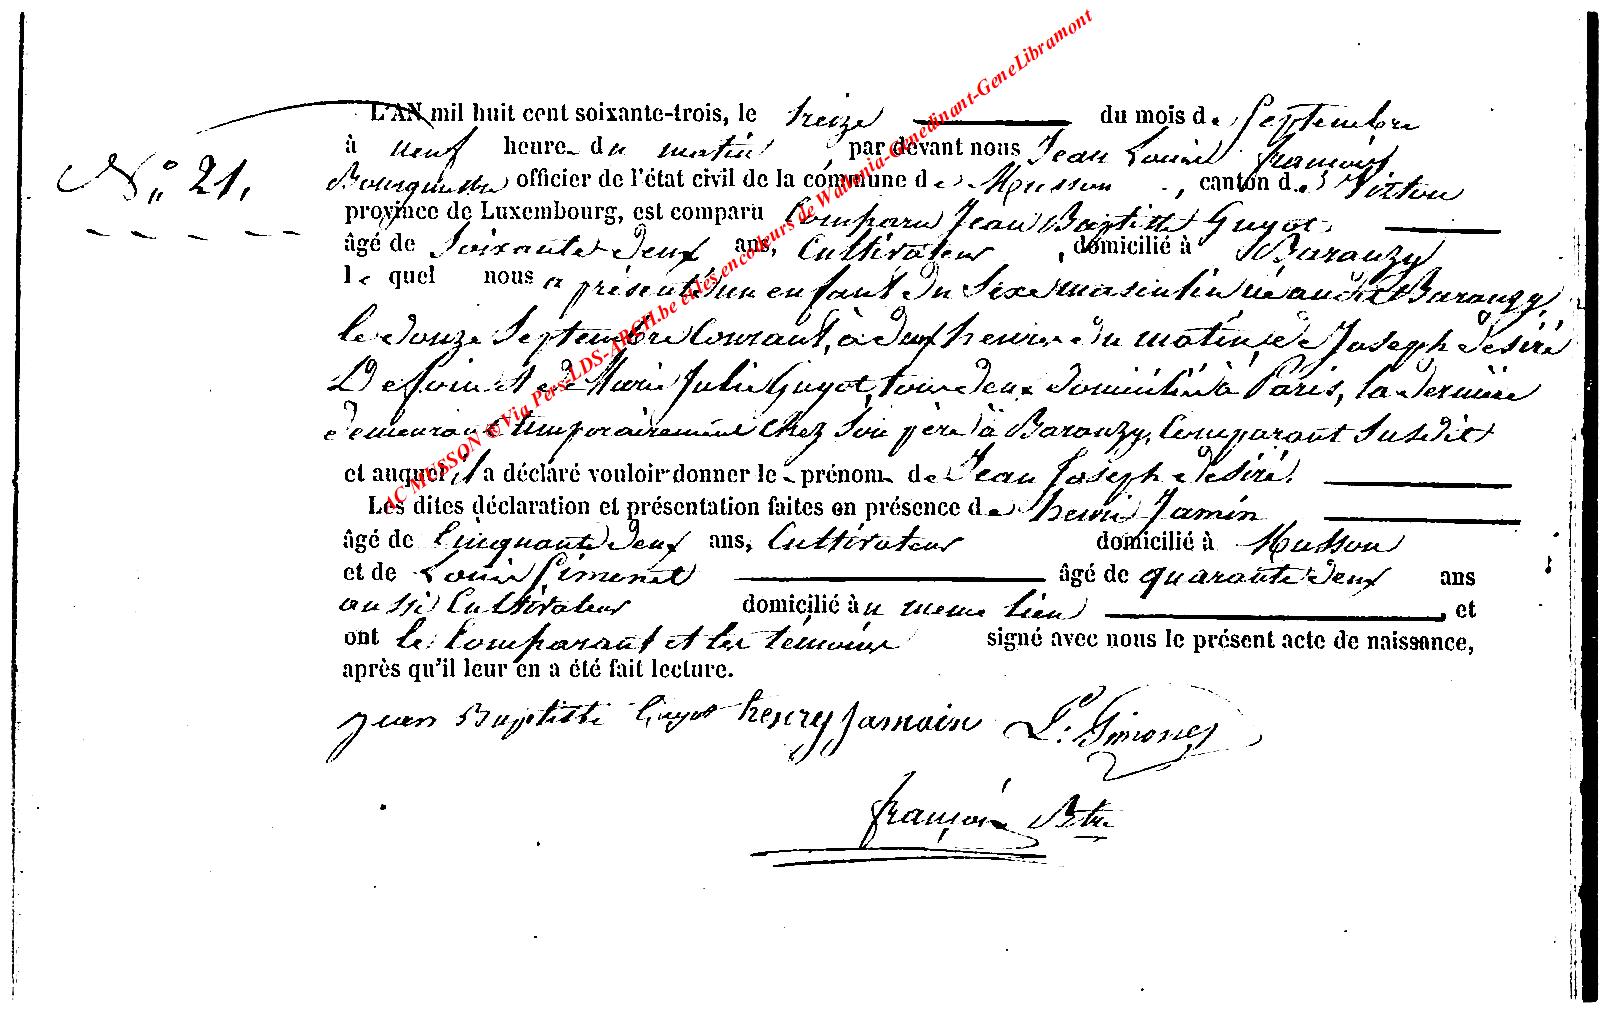 L'AN mil huit cent soixante-trois, le treize du mois de Septembre
N° 21. à neuf heure du matin par devant nous Jean Louis françois
Bourguemtre officier de l'état civil de la commune de Musson, canton de Virton
province de Luxembourg, est comparu Comparu Jean Baptitte Guyot
âgé de Soixante deux ans, Cultivateur, domicilié à Baranzy
lequel nous a présenté un enfant du Sexe masculin né audit Baranzy,
le douze Septembre Courant, à deux heures du matin, de Joseph désiré
et de Marie Julie Guyot, tous deux domiciliés à Paris, la dernière
demeurant temporairement Chez Son père à Baranzy, Comparant Susdit
et auquel il a déclaré vouloir donner le prénom de Jean Joseph desiré.
Les dites déclaration et présentation faites en présence de henri Jamin
âgé de Cinquante deux ans, Cultivateur domicilié à Musson
et de Louis Gimonet âgé de quarante deux ans
aussi Cultivateur domicilié à u meme lieu, et
ont le Comparant et les témoins signé avec nous le présent acte de naissance,
après qu'il leur en a été fait lecture.
jean Baptitte Guyot henry jamain L: Gimonet
françois
AC MUSSON ©Via Pers-LDS-ARCH.be et les encodeurs de Wallonia-Genedinant-GeneLibramont